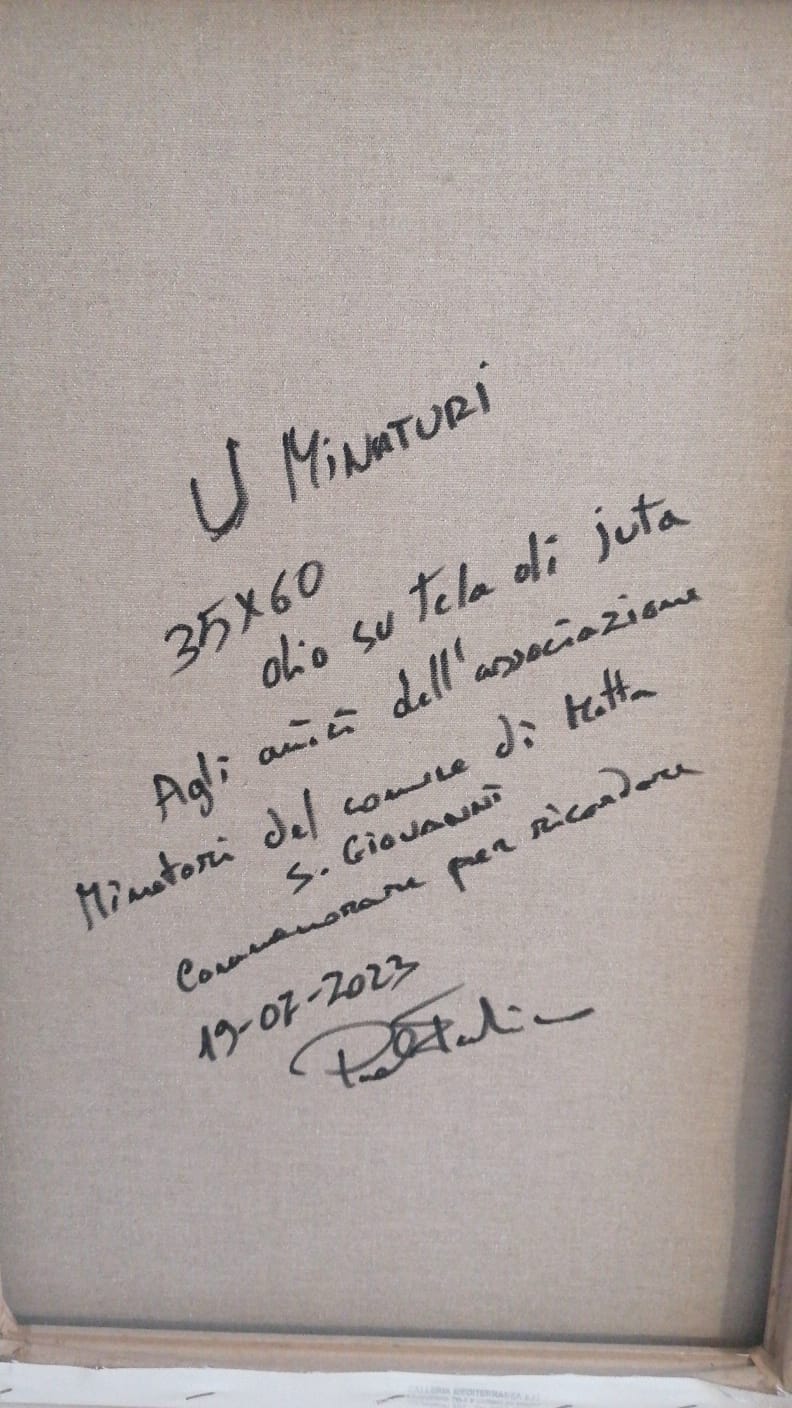 U MiNATURi
35x60
olio su tela di juta
Agli amici dell'associazione
Minatori del comune di Motta
S. Giovanni
Commemorare per ricordare
19-07-2023